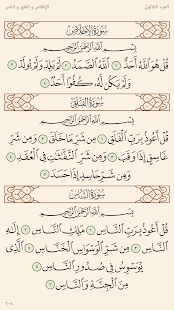 الجزء الثلاثون
الإخلاص و الفلق و الناس
سُورَةُ الإِخْلَاصِ
بِسْمِ ٱللَّهِ ٱلرَّحْمَٰنِ ٱلرَّحِيمِ
قُلْ هُوَ ٱللَّهُ أَحَدٌ ١ ٱللَّهُ ٱلصَّمَدُ ٢ لَمْ يَلِدْ وَلَمْ يُولَدْ ٣
وَلَمْ يَكُن لَّهُۥ كُفُوًا أَحَدٌۢ ٤
سُورَةُ الْفَلَقِ
بِسْمِ ٱللَّهِ ٱلرَّحْمَٰنِ ٱلرَّحِيمِ
قُلْ أَعُوذُ بِرَبِّ ٱلْفَلَقِ ١ مِن شَرِّ مَا خَلَقَ ٢ وَمِن شَرِّ
غَاسِقٍ إِذَا وَقَبَ ٣ وَمِن شَرِّ ٱلنَّفَّٰثَٰتِ فِى ٱلْعُقَدِ ٤
وَمِن شَرِّ حَاسِدٍ إِذَا حَسَدَ ٥
سُورَةُ النَّاسِ
بِسْمِ ٱللَّهِ ٱلرَّحْمَٰنِ ٱلرَّحِيمِ
قُلْ أَعُوذُ بِرَبِّ ٱلنَّاسِ ١ مَلِكِ ٱلنَّاسِ ٢ إِلَٰهِ
ٱلنَّاسِ ٣ مِن شَرِّ ٱلْوَسْوَاسِ ٱلْخَنَّاسِ ٤ ٱلَّذِى
يُوَسْوِسُ فِى صُدُورِ ٱلنَّاسِ ٥
مِنَ ٱلْجِنَّةِ وَٱلنَّاسِ ٦
٦٠٤